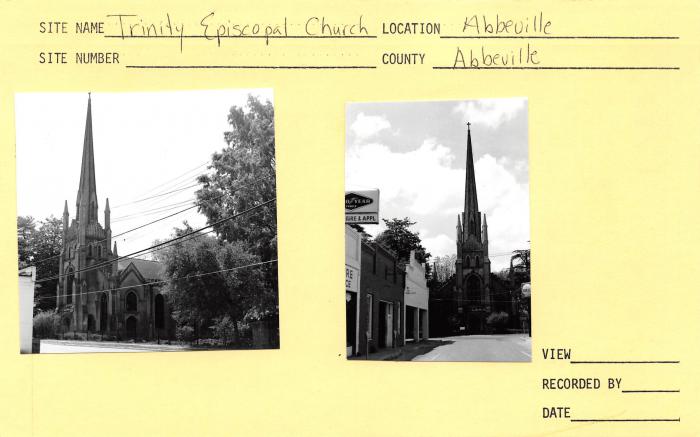 SITE NAME Trinity Episcopal Church LOCATION Abbeville
SITE NUMBER COUNTY Abbeville
YEAR
IRE & APPL
RE
CE
VIEW
RECORDED BY
DATE